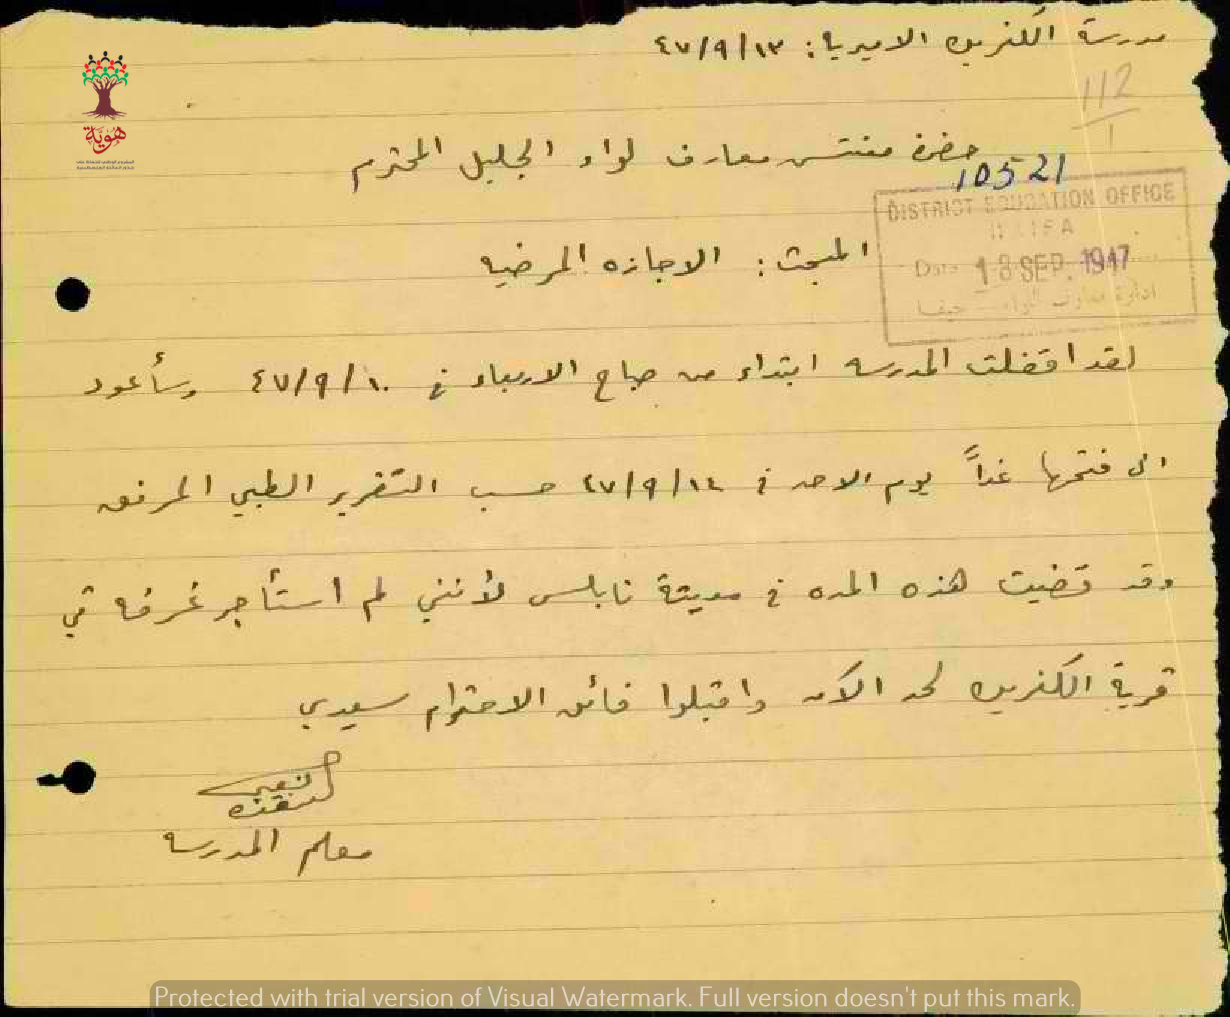 مدرسة الكفرين الاميرية: ٤٧/٩/١٣
112
1
حضرة مفتش معارف لواء الجليل المحترم
10521
DISTRICT EDUCATION OFFICE
HAIFA
Date 18 SEP. 1947
ادارة معارف لواء حيفا
المبحث: الاجازه المرضيه
لقد اقفلت المدرسه ابتداء من صباح الاربعاء في ٤٧/٩/١٠ وسأعود
الى فتحها غداً يوم الاحد في ٤٧/٩/١٤ حسب التقرير الطبي المرفق
وقد قضيت هذه المده في مدينة نابلس لأنني لم استأجر غرفه في
قرية الكفرين لحد الآن واقبلوا فائق الاحترام سيدي
معلم المدرسه
هوية
Protected with trial version of Visual Watermark. Full version doesn't put this mark.